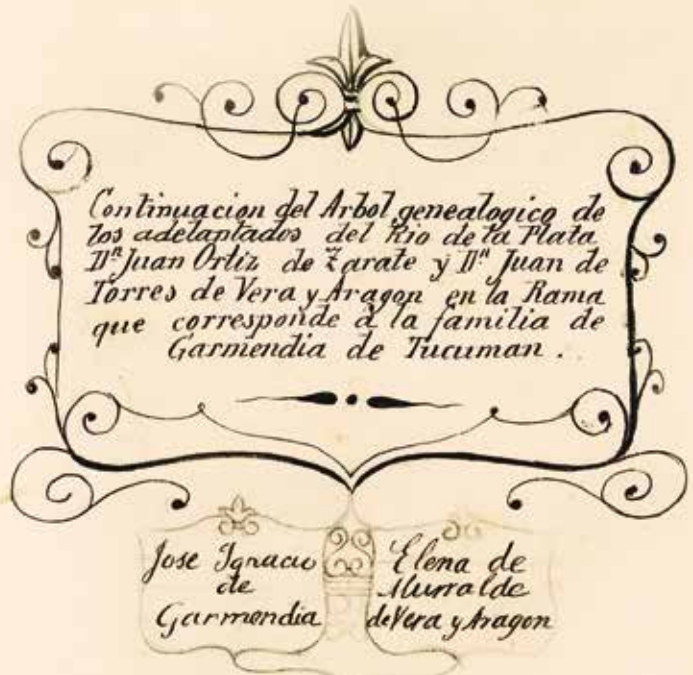 Continuacion del Arbol genealogico de
los adelantados del Rio de la Plata
Dⁿ Juan Ortiz de Zarate y Dⁿ Juan de
Torres de Vera y Aragon en la Rama
que corresponde á la familia de
Garmendia de Tucuman.
Jose Ignacio
de
Garmendia
Elena de
Iturralde
de Vera y Aragon